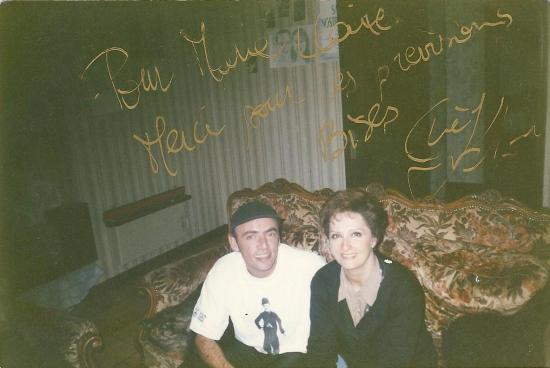 Pour Marie Claire
Merci pour tes prévisions
Bises